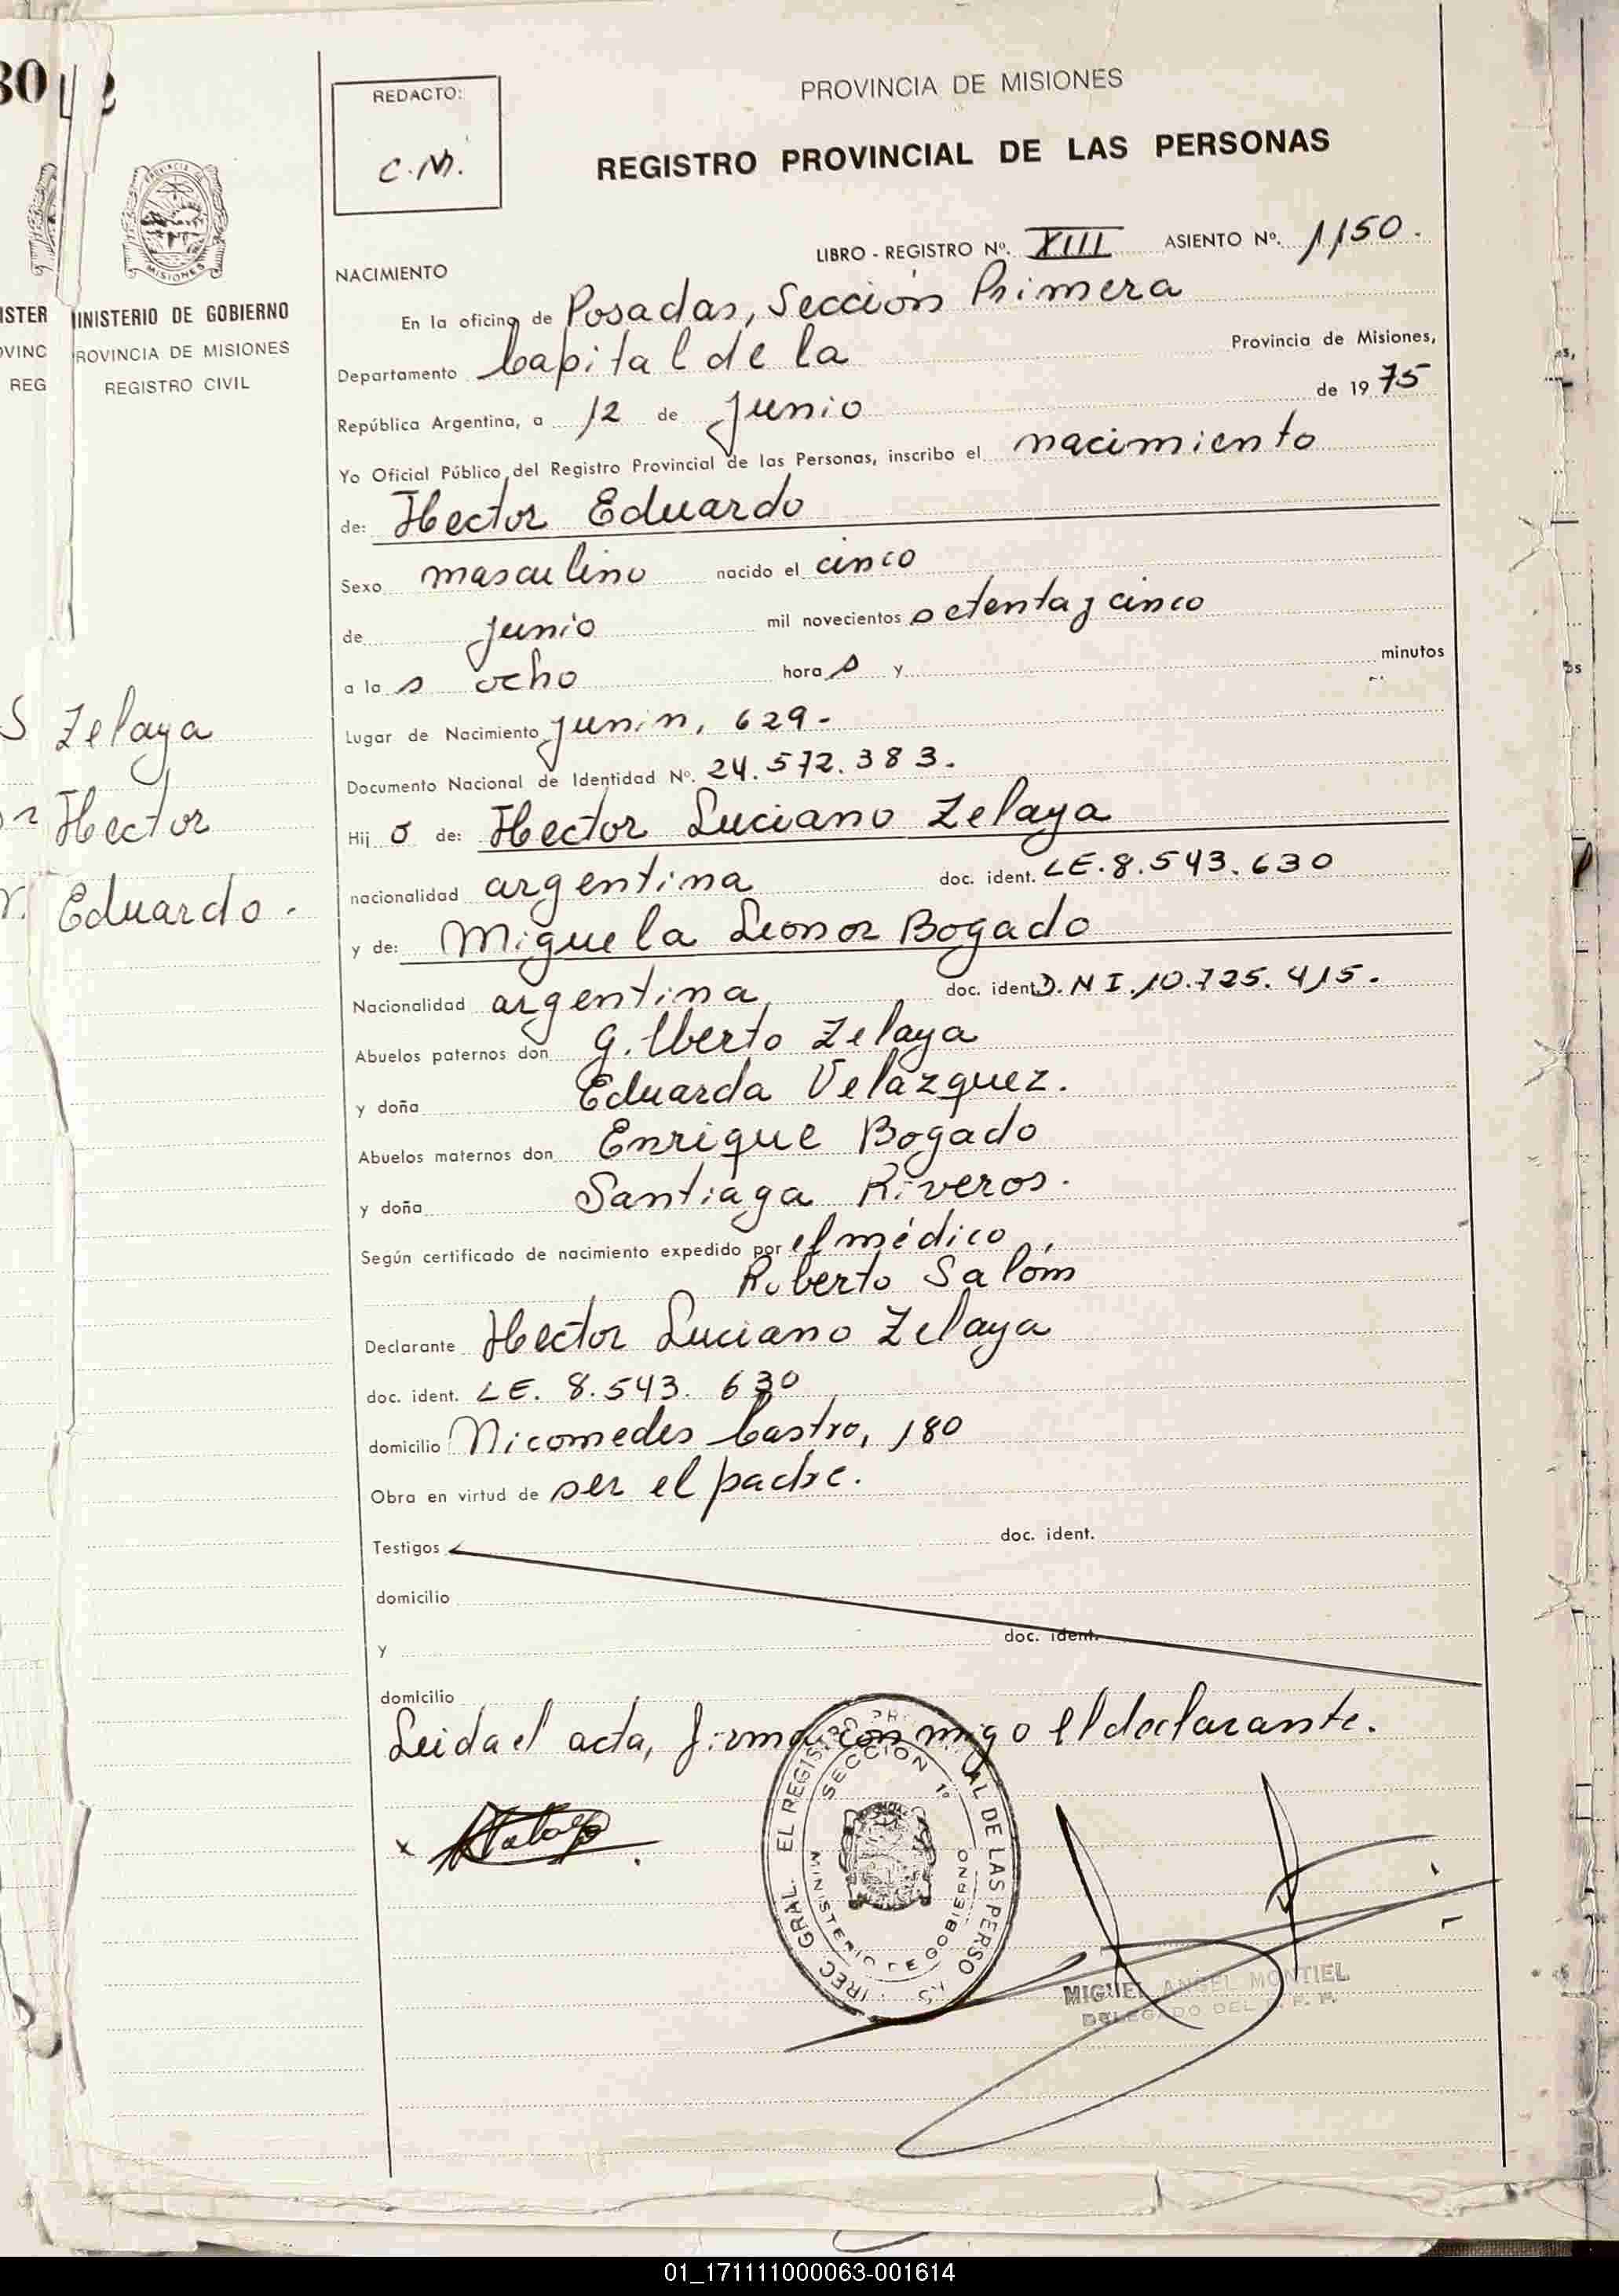 30
REDACTO:
C.M.
PROVINCIA DE MISIONES
REGISTRO PROVINCIAL DE LAS PERSONAS
LIBRO - REGISTRO Nº. XIII ASIENTO Nº. 1150.
NACIMIENTO
En la oficina de Posadas, Sección Primera
Departamento Capital de la Provincia de Misiones,
República Argentina, a 12 de Junio de 1975
Yo Oficial Público del Registro Provincial de las Personas, inscribo el nacimiento
de: Hector Eduardo
Sexo masculino nacido el cinco
de junio mil novecientos setenta y cinco
a la s ocho hora s y minutos
Lugar de Nacimiento Junin, 629-
Documento Nacional de Identidad Nº. 24.572.383.
Hij o de: Hector Luciano Zelaya
nacionalidad argentina doc. ident. LE.8.543.630
y de: Miguela Leonor Bogado
Nacionalidad argentina doc. ident. D.N I.10.725.415.
Abuelos paternos don Gilberto Zelaya
y doña Eduarda Velazquez.
Abuelos maternos don Enrique Bogado
y doña Santiaga Riveros.
Según certificado de nacimiento expedido por el médico
Roberto Salóm
Declarante Hector Luciano Zelaya
doc. ident. LE. 8.543. 630
domicilio Nicomedes Castro, 180
Obra en virtud de ser el padre.
Testigos doc. ident.
domicilio
y doc. ident.
domicilio
Leida el acta, firma conmigo el declarante.
SECCION 1º
MINISTERIO DE GOBIERNO
MIGUEL ANGEL MONTIEL
DELEGADO DEL
ISTER
OVINC
REG
PROVINCIA DE
MISIONES
MINISTERIO DE GOBIERNO
PROVINCIA DE MISIONES
REGISTRO CIVIL
Zelaya
Hector
Eduardo.
01_171111000063-001614